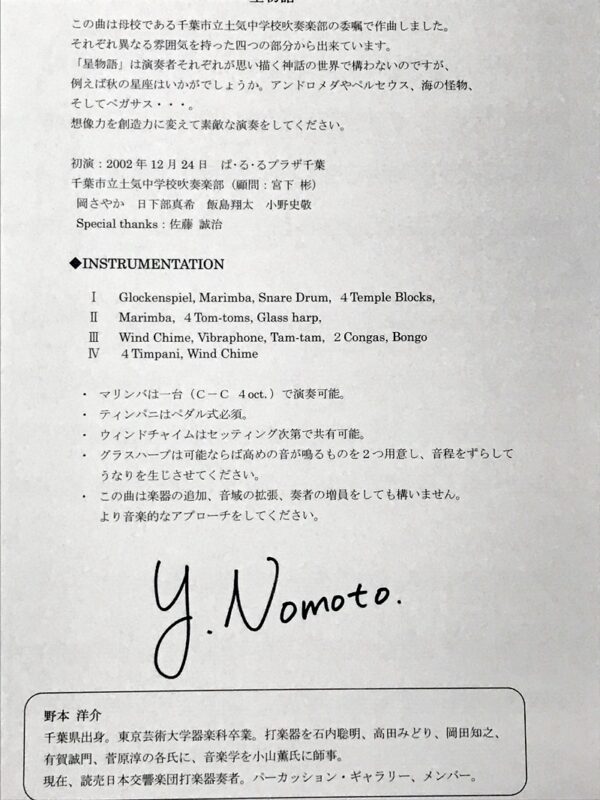 星物語
この曲は母校である千葉市立土気中学校吹奏楽部の委嘱で作曲しました。
それぞれ異なる雰囲気を持った四つの部分から出来ています。
「星物語」は演奏者それぞれが思い描く神話の世界で構わないのですが、
例えば秋の星座はいかがでしょうか。アンドロメダやペルセウス、海の怪物、
そしてペガサス・・・。
想像力を創造力に変えて素敵な演奏をしてください。
初演：2002 年 12 月 24 日　ぱ・る・るプラザ千葉
千葉市立土気中学校吹奏楽部（顧問：宮下 彬）
岡さやか　日下部真希　飯島翔太　小野史敬
Special thanks：佐藤 誠治
◆INSTRUMENTATION
Ⅰ　Glockenspiel, Marimba, Snare Drum, ４Temple Blocks,
Ⅱ　Marimba, ４Tom-toms, Glass harp,
Ⅲ　Wind Chime, Vibraphone, Tam-tam, ２Congas, Bongo
Ⅳ　４Timpani, Wind Chime
・ マリンバは一台（Ｃ－Ｃ ４oct.）で演奏可能。
・ ティンパニはペダル式必須。
・ ウィンドチャイムはセッティング次第で共有可能。
・ グラスハープは可能ならば高めの音が鳴るものを２つ用意し、音程をずらして
うなりを生じさせてください。
・ この曲は楽器の追加、音域の拡張、奏者の増員をしても構いません。
より音楽的なアプローチをしてください。
Y. Nomoto.
野本 洋介
千葉県出身。東京芸術大学器楽科卒業。打楽器を石内聡明、高田みどり、岡田知之、
有賀誠門、菅原淳の各氏に、音楽学を小山薫氏に師事。
現在、読売日本交響楽団打楽器奏者。パーカッション・ギャラリー、メンバー。